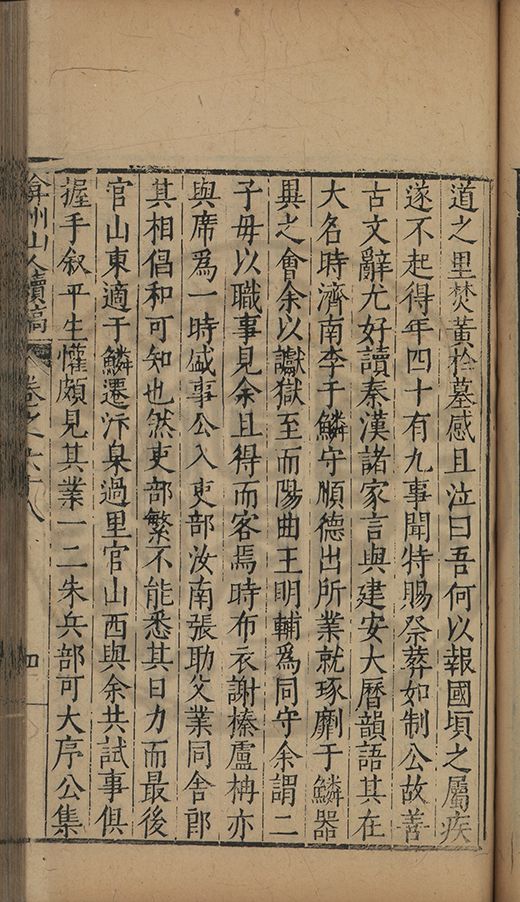 道之里焚黃於墓感且泣曰吾何以報國頃之屬疾
遂不起得年四十有九事聞特賜祭葬如制公故善
古文辭尤好讀秦漢諸家言與建安大曆韻語其在
大名時濟南李于鱗守順德出所業就琢劘于鱗器
異之會余以讞獄至而陽曲王明輔為同守余謂二
子毋以職事見余且得而客焉時布衣謝榛盧柟亦
與席為一時盛事公入吏部汝南張助父業同舍郎
其相倡和可知也然吏部繁不能悉其日力而最後
官山東適于鱗遷汴臬過里官山西與余共試事俱
握手叙平生懽頗見其業一二朱兵部可大序公集
弇州山人續稿 卷之六十八 四